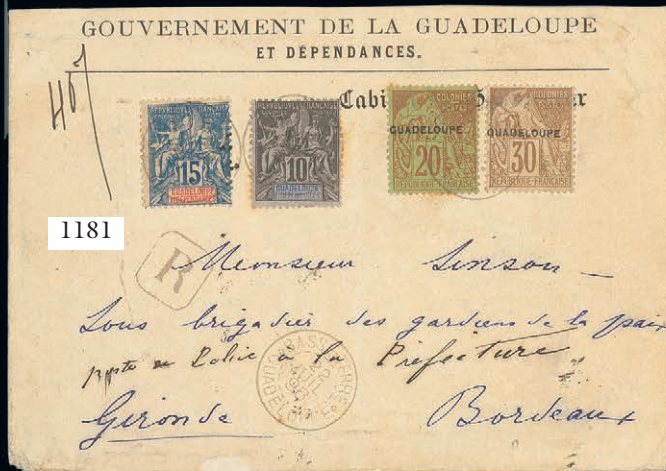 GOUVERNEMENT DE LA GUADELOUPE
ET DÉPENDANCES.
Cabi
RÉPUBLIQUE FRANÇAISE
15
GUADELOUPE
ET DÉPENDANCES
RÉPUBLIQUE FRANÇAISE
10
GUADELOUPE
ET DÉPENDANCES
COLONIES
GUADELOUPE
20
RÉPUBLIQUE-FRANÇAISE
COLONIES
GUADELOUPE
30
RÉPUBLIQUE-FRANÇAISE
1181
R
Monsieur Sinson
Sous brigadier des gardiens de la paix
poste de Police à la Préfecture
Gironde Bordeaux